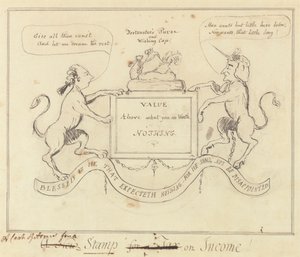 Give all thou canst
And let me dream the rest
Fortunatus's Purse
Wishing Cap.
Man wants but little here below,
Nor wants that little long!
VALUE
Above what you are Worth
NOTHING
BLESSED IS HE THAT EXPECTETH NOTHING FOR HE SHALL NOT BE DISAPPOINTED
Stamp on Income!